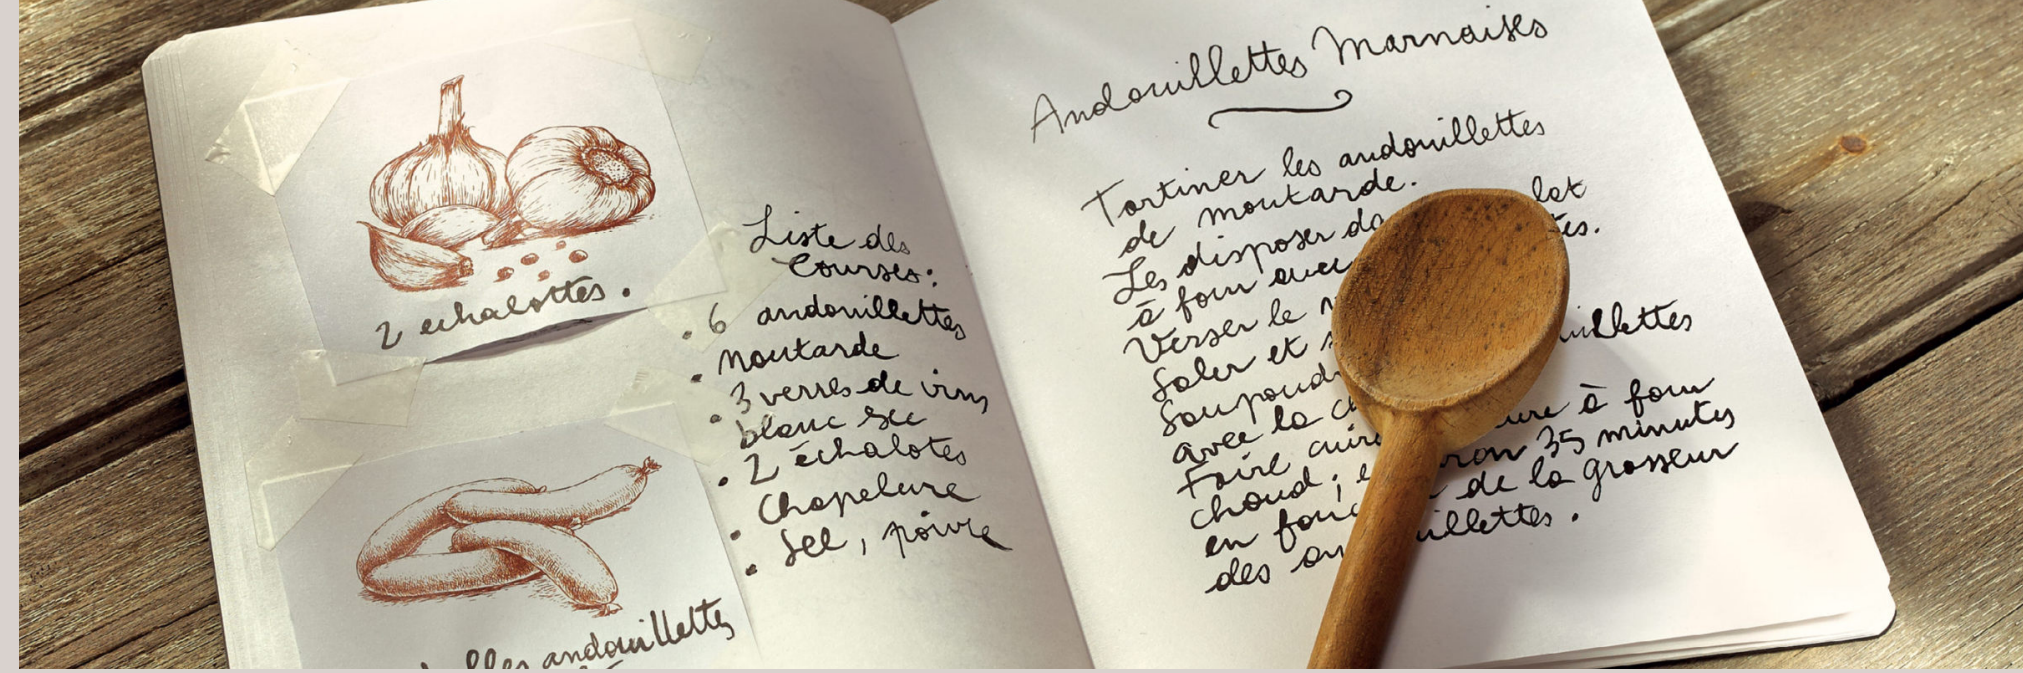 2 echalottes.
andouillettes
Liste des
Courses:
. 6 andouillettes
. Moutarde
. 3 verres de vins
blanc sec
. 2 échalotes
. Chapelure
. Sel, poivre
Andouillettes Marnaises
Tartiner les andouillettes
de moutarde.
Les disposer
à four avec
Verser le
Saler et
avec la
Faire cuire à four
chaud; 35 minutes
en de la grosseur
des